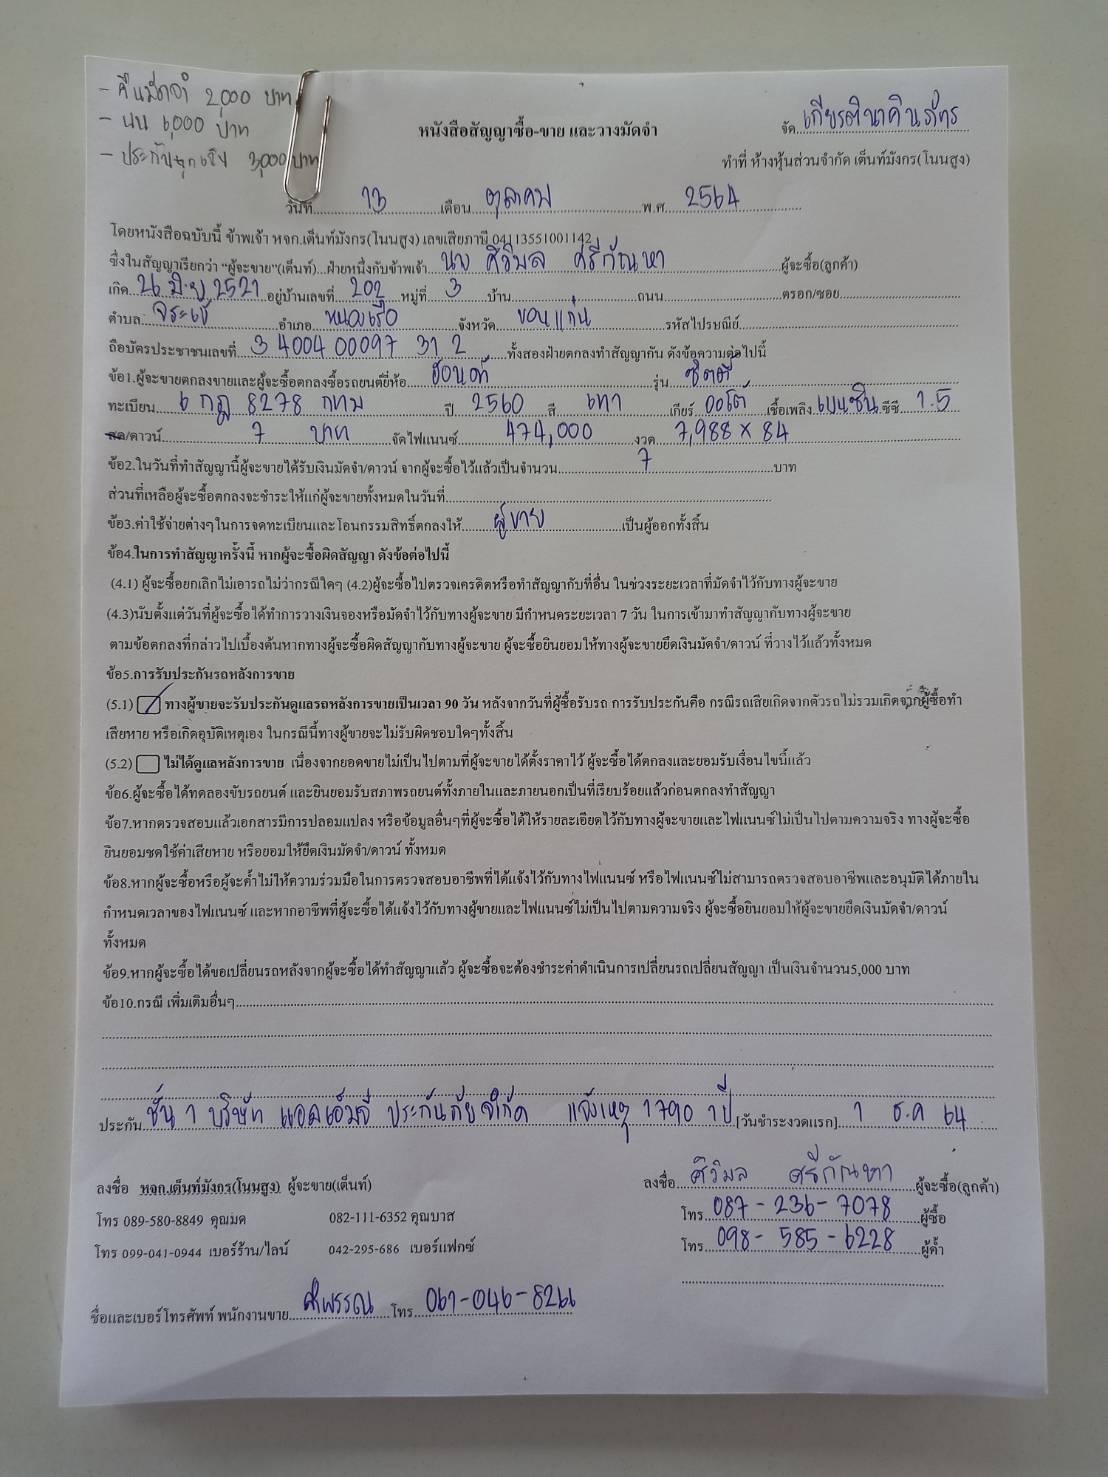 - คืนมัดจำ 2,000 บาท
- นน 6,000 บาท
- ประกันฉุกเฉิน 3,000 บาท
หนังสือสัญญาซื้อ-ขาย และวางมัดจำ
จัด เกียรตินาคินภัทร
ทำที่ ห้างหุ้นส่วนจำกัด เต็นท์มังกร(โนนสูง)
วันที่ 13 เดือน ตุลาคม พ.ศ. 2564
โดยหนังสือฉบับนี้ ข้าพเจ้า หจก.เต็นท์มังกร(โนนสูง) เลขเสียภาษี 04113551001142
ซึ่งในสัญญาเรียกว่า "ผู้จะขาย"(เต็นท์)...ฝ่ายหนึ่งกับข้าพเจ้า นาง ศิวิมล ศรีกัณหา ผู้จะซื้อ(ลูกค้า)
เกิด 26 มิ.ย 2521 อยู่บ้านเลขที่ 202 หมู่ที่ 3 บ้าน ถนน ตรอก/ซอย
ตำบล จระเข้ อำเภอ หนองเรือ จังหวัด ขอนแก่น รหัสไปรษณีย์
ถือบัตรประชาชนเลขที่ 3 4004 00097 31 2 ทั้งสองฝ่ายตกลงทำสัญญากัน ดังข้อความต่อไปนี้
ข้อ1.ผู้จะขายตกลงขายและผู้จะซื้อตกลงซื้อรถยนต์ยี่ห้อ ฮอนด้า รุ่น ซิตตี้
ทะเบียน 6 กฎ 8278 กทม ปี 2560 สี เทา เกียร์ ออโต้ เชื้อเพลิง เบนซิน ซีซี 1.5
สด/ดาวน์ 7 บาท จัดไฟแนนซ์ 474,000 งวด 7,988 x 84
ข้อ2.ในวันที่ทำสัญญานี้ผู้จะขายได้รับเงินมัดจำ/ดาวน์ จากผู้จะซื้อไว้แล้วเป็นจำนวน 7 บาท
ส่วนที่เหลือผู้จะซื้อตกลงจะชำระให้แก่ผู้จะขายทั้งหมดในวันที่
ข้อ3.ค่าใช้จ่ายต่างๆในการจดทะเบียนและโอนกรรมสิทธิ์ตกลงให้ ผู้ขาย เป็นผู้ออกทั้งสิ้น
ข้อ4.ในการทำสัญญาครั้งนี้ หากผู้จะซื้อผิดสัญญา ดังข้อต่อไปนี้
(4.1) ผู้จะซื้อยกเลิกไม่เอารถไม่ว่ากรณีใดๆ (4.2)ผู้จะซื้อไปตรวจเครดิตหรือทำสัญญากับที่อื่น ในช่วงระยะเวลาที่มัดจำไว้กับทางผู้จะขาย
(4.3)นับตั้งแต่วันที่ผู้จะซื้อได้ทำการวางเงินจองหรือมัดจำไว้กับทางผู้จะขาย มีกำหนดระยะเวลา 7 วัน ในการเข้ามาทำสัญญากับทางผู้จะขาย
ตามข้อตกลงที่กล่าวไปเบื้องต้นหากทางผู้จะซื้อผิดสัญญากับทางผู้จะขาย ผู้จะซื้อยินยอมให้ทางผู้จะขายยึดเงินมัดจำ/ดาวน์ ที่วางไว้แล้วทั้งหมด
ข้อ5.การรับประกันรถหลังการขาย
(5.1) ทางผู้ขายจะรับประกันดูแลรถหลังการขายเป็นเวลา 90 วัน หลังจากวันที่ผู้ซื้อรับรถ การรับประกันคือ กรณีรถเสียเกิดจากตัวรถไม่รวมเกิดจากผู้ซื้อทำ
เสียหาย หรือเกิดอุบัติเหตุเอง ในกรณีนี้ทางผู้ขายจะไม่รับผิดชอบใดๆทั้งสิ้น
(5.2) ไม่ได้ดูแลหลังการขาย เนื่องจากยอดขายไม่เป็นไปตามที่ผู้จะขายได้ตั้งราคาไว้ ผู้จะซื้อได้ตกลงและยอมรับเงื่อนไขนี้แล้ว
ข้อ6.ผู้จะซื้อได้ทดลองขับรถยนต์ และยินยอมรับสภาพรถยนต์ทั้งภายในและภายนอกเป็นที่เรียบร้อยแล้วก่อนตกลงทำสัญญา
ข้อ7.หากตรวจสอบแล้วเอกสารมีการปลอมแปลง หรือข้อมูลอื่นๆที่ผู้จะซื้อได้ให้รายละเอียดไว้กับทางผู้จะขายและไฟแนนซ์ไม่เป็นไปตามความจริง ทางผู้จะซื้อ
ยินยอมชดใช้ค่าเสียหาย หรือยอมให้ยึดเงินมัดจำ/ดาวน์ ทั้งหมด
ข้อ8.หากผู้จะซื้อหรือผู้จะค้ำไม่ให้ความร่วมมือในการตรวจสอบอาชีพที่ได้แจ้งไว้กับทางไฟแนนซ์ หรือไฟแนนซ์ไม่สามารถตรวจสอบอาชีพและอนุมัติได้ภายใน
กำหนดเวลาของไฟแนนซ์ และหากอาชีพที่ผู้จะซื้อได้แจ้งไว้กับทางผู้ขายและไฟแนนซ์ไม่เป็นไปตามความจริง ผู้จะซื้อยินยอมให้ผู้จะขายยึดเงินมัดจำ/ดาวน์
ทั้งหมด
ข้อ9.หากผู้จะซื้อได้ขอเปลี่ยนรถหลังจากผู้จะซื้อได้ทำสัญญาแล้ว ผู้จะซื้อจะต้องชำระค่าดำเนินการเปลี่ยนรถเปลี่ยนสัญญา เป็นเงินจำนวน5,000 บาท
ข้อ10.กรณี เพิ่มเติมอื่นๆ
ประกัน ชั้น 1 บริษัท แอลเอ็มจี ประกันภัย จำกัด แจ้งเหตุ 1790 1 ปี [วันชำระงวดแรก] 1 ธ.ค 64
ลงชื่อ หจก.เต็นท์มังกร(โนนสูง) ผู้จะขาย(เต็นท์) ลงชื่อ ศิวิมล ศรีกัณหา ผู้จะซื้อ(ลูกค้า)
โทร 089-580-8849 คุณมด 082-111-6352 คุณบาส โทร 087-236-7078 ผู้ซื้อ
โทร 099-041-0944 เบอร์ร้าน/ไลน์ 042-295-686 เบอร์แฟกซ์ โทร 098-585-6228 ผู้ค้ำ
ชื่อและเบอร์โทรศัพท์ พนักงานขาย คำพรรณ โทร 061-046-8266